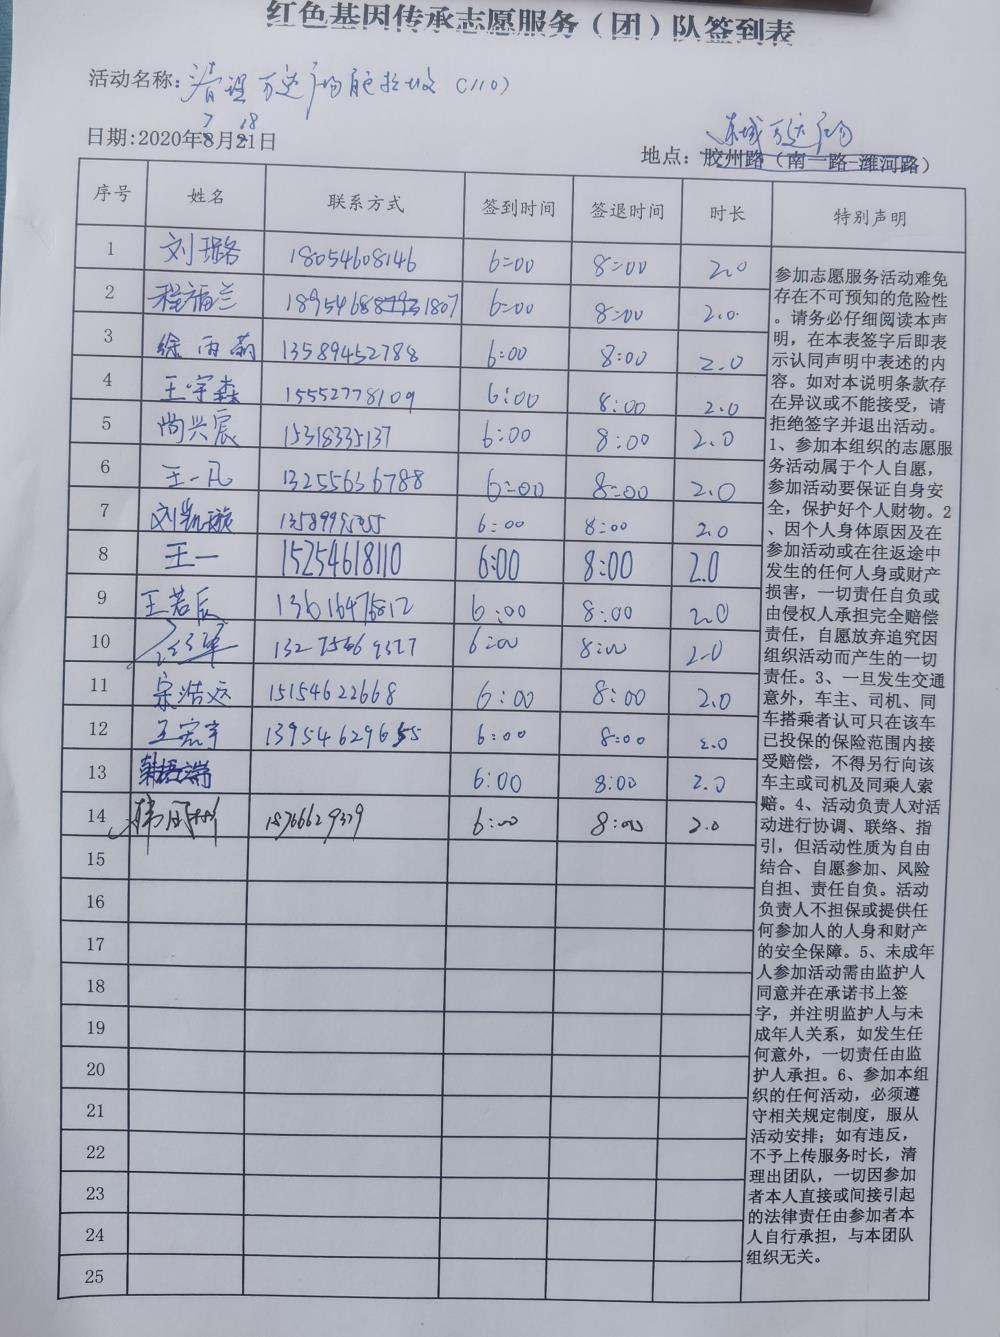 红色基因传承志愿服务(团)队签到表
活动名称: 清理万达广场 垃圾 (110)
7 18
日期:2020年8月21日
东城万达广场
地点: 胶州路(南一路-潍河路)
序号 姓名 联系方式 签到时间 签退时间 时长 特别声明
1 刘璐 18054608146 6:00 8:00 2.0
2 程福兰 1807 6:00 8:00 2.0
3 徐雨蔚 13589452788 6:00 8:00 2.0
4 王宇森 15552778109 6:00 8:00 2.0
5 尚兴宸 15318335137 6:00 8:00 2.0
6 王一凡 13255636788 6:00 8:00 2.0
7 刘凯璇 6:00 8:00 2.0
8 王一 15254618110 6:00 8:00 2.0
9 王若辰 6:00 8:00 2.0
10 6:00 8:00 2.0
11 宋浩远 15154622668 6:00 8:00 2.0
12 王宏宇 6:00 8:00 2.0
13 6:00 8:00 2.0
14 18766629379 6:00 8:00 2.0
15
16
17
18
19
20
21
22
23
24
25
参加志愿服务活动难免
存在不可预知的危险性
。请务必仔细阅读本声
明,在本表签字后即表
示认同声明中表述的内
容。如对本说明条款存
在异议或不能接受,请
拒绝签字并退出活动。
1、参加本组织的志愿服
务活动属于个人自愿,
参加活动要保证自身安
全,保护好个人财物。2
、因个人身体原因及在
参加活动或在往返途中
发生的任何人身或财产
损害,一切责任自负或
由侵权人承担完全赔偿
责任,自愿放弃追究因
组织活动而产生的一切
责任。3、一旦发生交通
意外,车主、司机、同
车搭乘者认可只在该车
已投保的保险范围内接
受赔偿,不得另行向该
车主或司机及同乘人索
赔。4、活动负责人对活
动进行协调、联络、指
引,但活动性质为自由
结合、自愿参加、风险
自担、责任自负。活动
负责人不担保或提供任
何参加人的人身和财产
的安全保障。5、未成年
人参加活动需由监护人
同意并在承诺书上签
字,并注明监护人与未
成年人关系,如发生任
何意外,一切责任由监
护人承担。6、参加本组
织的任何活动,必须遵
守相关规定制度,服从
活动安排;如有违反,
不予上传服务时长,清
理出团队,一切因参加
者本人直接或间接引起
的法律责任由参加者本
人自行承担,与本团队
组织无关。